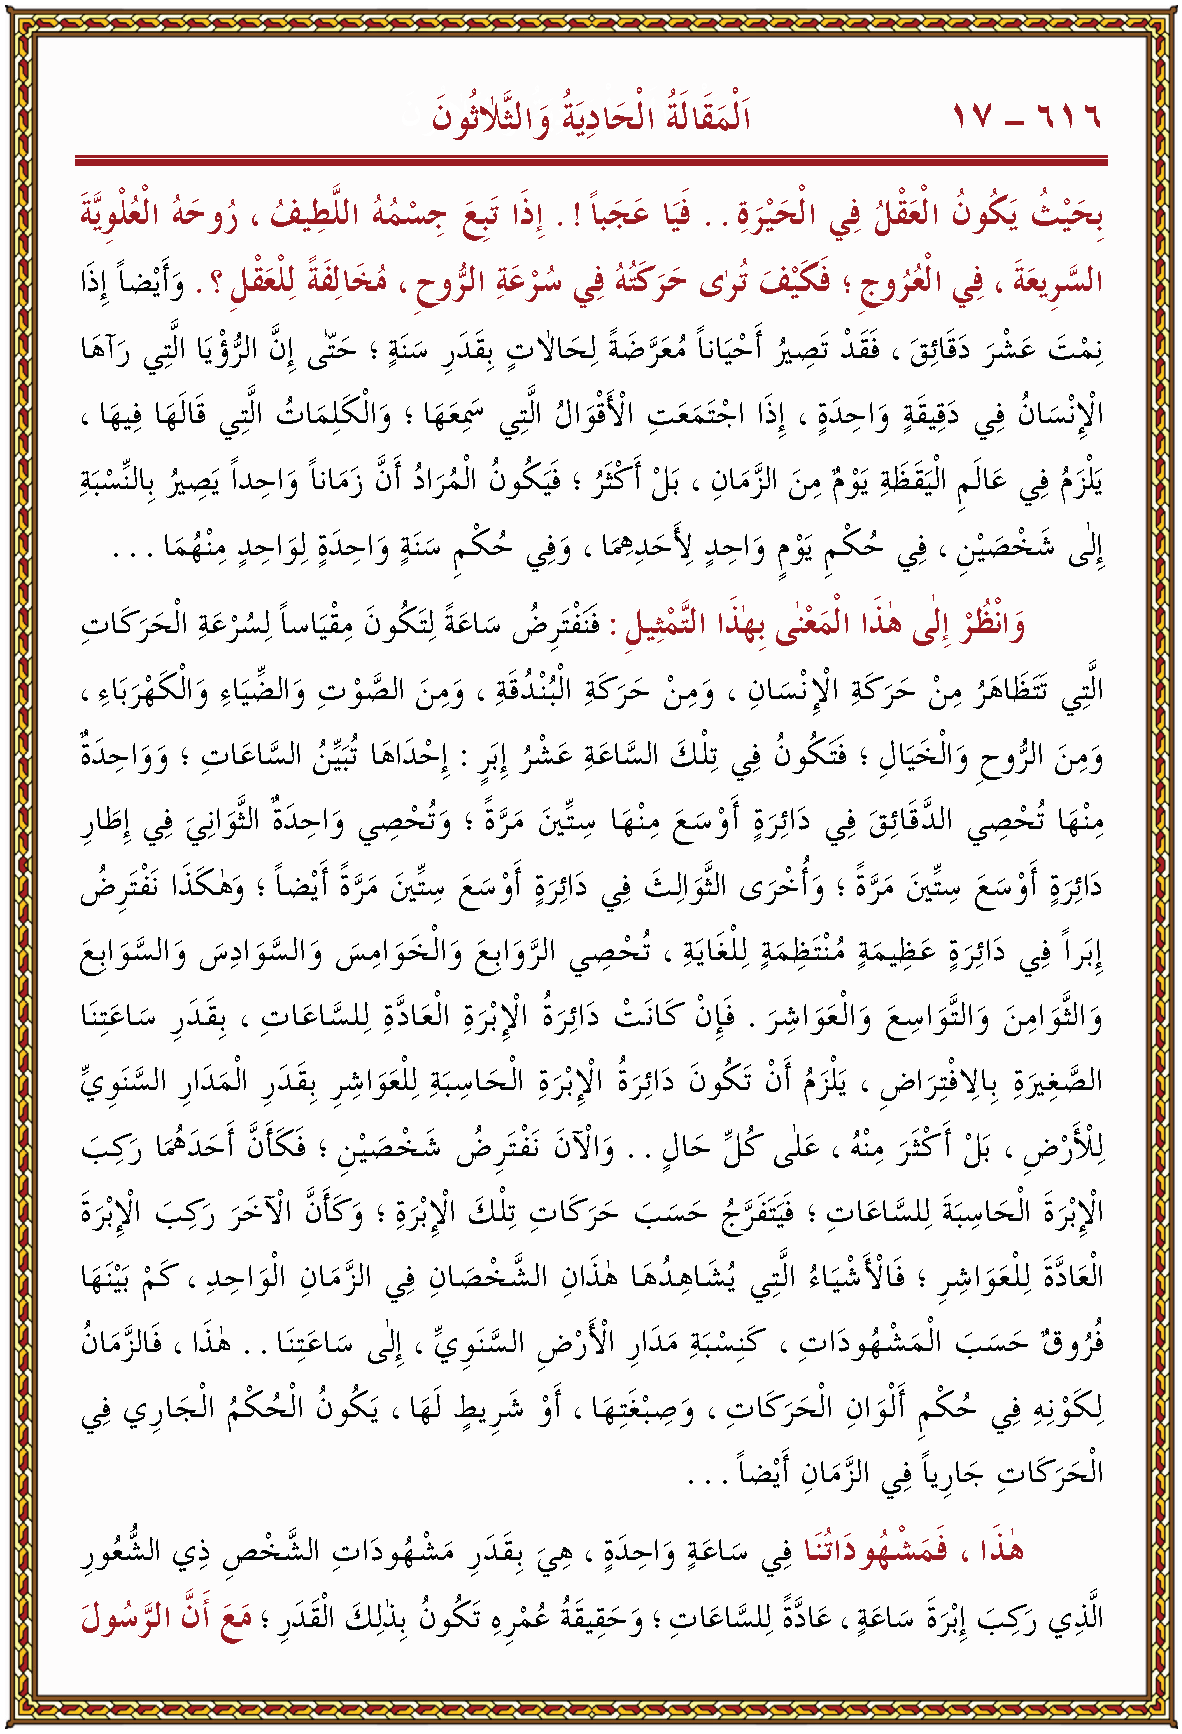 ٦١٦ – ١٧ اَلْمَقَالَةُ الْحَادِيَةُ وَالثَّلاٰثُونَ
بِحَيْثُ يَكُونُ الْعَقْلُ فِي الْحَيْرَةِ . . فَيَا عَجَباً ! . إِذَا تَبِعَ جِسْمُهُ اللَّطِيفُ ، رُوحَهُ الْعُلْوِيَّةَ
السَّرِيعَةَ ، فِي الْعُرُوجِ ؛ فَكَيْفَ تُرٰى حَرَكَتُهُ فِي سُرْعَةِ الرُّوحِ ، مُخَالِفَةً لِلْعَقْلِ ؟ . وَأَيْضاً إِذَا
نِمْتَ عَشْرَ دَقَائِقَ ، فَقَدْ تَصِيرُ أَحْيَاناً مُعَرَّضَةً لِحَالاٰتٍ بِقَدَرِ سَنَةٍ ؛ حَتّٰى إِنَّ الرُّؤْيَا الَّتِي رَآهَا
الْإِنْسَانُ فِي دَقِيقَةٍ وَاحِدَةٍ ، إِذَا اجْتَمَعَتِ الْأَقْوَالُ الَّتِي سَمِعَهَا ؛ وَالْكَلِمَاتُ الَّتِي قَالَهَا فِيهَا ،
يَلْزَمُ فِي عَالَمِ الْيَقَظَةِ يَوْمٌ مِنَ الزَّمَانِ ، بَلْ أَكْثَرُ ؛ فَيَكُونُ الْمُرَادُ أَنَّ زَمَاناً وَاحِداً يَصِيرُ بِالنِّسْبَةِ
إِلٰى شَخْصَيْنِ ، فِي حُكْمِ يَوْمٍ وَاحِدٍ لِأَحَدِهِمَا ، وَفِي حُكْمِ سَنَةٍ وَاحِدَةٍ لِوَاحِدٍ مِنْهُمَا . . .
وَانْظُرْ إِلٰى هٰذَا الْمَعْنٰى بِهٰذَا التَّمْثِيلِ : فَنَفْتَرِضُ سَاعَةً لِتَكُونَ مِقْيَاساً لِسُرْعَةِ الْحَرَكَاتِ
الَّتِي تَتَظَاهَرُ مِنْ حَرَكَةِ الْإِنْسَانِ ، وَمِنْ حَرَكَةِ الْبُنْدُقَةِ ، وَمِنَ الصَّوْتِ وَالضِّيَاءِ وَالْكَهْرَبَاءِ ،
وَمِنَ الرُّوحِ وَالْخَيَالِ ؛ فَتَكُونُ فِي تِلْكَ السَّاعَةِ عَشْرُ إِبَرٍ : إِحْدَاهَا تُبَيِّنُ السَّاعَاتِ ؛ وَوَاحِدَةٌ
مِنْهَا تُحْصِي الدَّقَائِقَ فِي دَائِرَةٍ أَوْسَعَ مِنْهَا سِتِّينَ مَرَّةً ؛ وَتُحْصِي وَاحِدَةٌ الثَّوَانِيَ فِي إِطَارِ
دَائِرَةٍ أَوْسَعَ سِتِّينَ مَرَّةً ؛ وَأُخْرَى الثَّوَالِثَ فِي دَائِرَةٍ أَوْسَعَ سِتِّينَ مَرَّةً أَيْضاً ؛ وَهٰكَذَا نَفْتَرِضُ
إِبَراً فِي دَائِرَةٍ عَظِيمَةٍ مُنْتَظِمَةٍ لِلْغَايَةِ ، تُحْصِي الرَّوَابِعَ وَالْخَوَامِسَ وَالسَّوَادِسَ وَالسَّوَابِعَ
وَالثَّوَامِنَ وَالتَّوَاسِعَ وَالْعَوَاشِرَ . فَإِنْ كَانَتْ دَائِرَةُ الْإِبْرَةِ الْعَادَّةِ لِلسَّاعَاتِ ، بِقَدَرِ سَاعَتِنَا
الصَّغِيرَةِ بِالاِفْتِرَاضِ ، يَلْزَمُ أَنْ تَكُونَ دَائِرَةُ الْإِبْرَةِ الْحَاسِبَةِ لِلْعَوَاشِرِ بِقَدَرِ الْمَدَارِ السَّنَوِيِّ
لِلْأَرْضِ ، بَلْ أَكْثَرَ مِنْهُ ، عَلٰى كُلِّ حَالٍ . . وَالْآنَ نَفْتَرِضُ شَخْصَيْنِ ؛ فَكَأَنَّ أَحَدَهُمَا رَكِبَ
الْإِبْرَةَ الْحَاسِبَةَ لِلسَّاعَاتِ ؛ فَيَتَفَرَّجُ حَسَبَ حَرَكَاتِ تِلْكَ الْإِبْرَةِ ؛ وَكَأَنَّ الْآخَرَ رَكِبَ الْإِبْرَةَ
الْعَادَّةَ لِلْعَوَاشِرِ ؛ فَالْأَشْيَاءُ الَّتِي يُشَاهِدُهَا هٰذَانِ الشَّخْصَانِ فِي الزَّمَانِ الْوَاحِدِ ، كَمْ بَيْنَهَا
فُرُوقٌ حَسَبَ الْمَشْهُودَاتِ ، كَنِسْبَةِ مَدَارِ الْأَرْضِ السَّنَوِيِّ ، إِلٰى سَاعَتِنَا . . هٰذَا ، فَالزَّمَانُ
لِكَوْنِهِ فِي حُكْمِ أَلْوَانِ الْحَرَكَاتِ ، وَصِبْغَتِهَا ، أَوْ شَرِيطٍ لَهَا ، يَكُونُ الْحُكْمُ الْجَارِي فِي
الْحَرَكَاتِ جَارِياً فِي الزَّمَانِ أَيْضاً . . .
هٰذَا ، فَمَشْهُودَاتُنَا فِي سَاعَةٍ وَاحِدَةٍ ، هِيَ بِقَدَرِ مَشْهُودَاتِ الشَّخْصِ ذِي الشُّعُورِ
الَّذِي رَكِبَ إِبْرَةَ سَاعَةٍ ، عَادَّةً لِلسَّاعَاتِ ؛ وَحَقِيقَةُ عُمْرِهِ تَكُونُ بِذٰلِكَ الْقَدَرِ ؛ مَعَ أَنَّ الرَّسُولَ